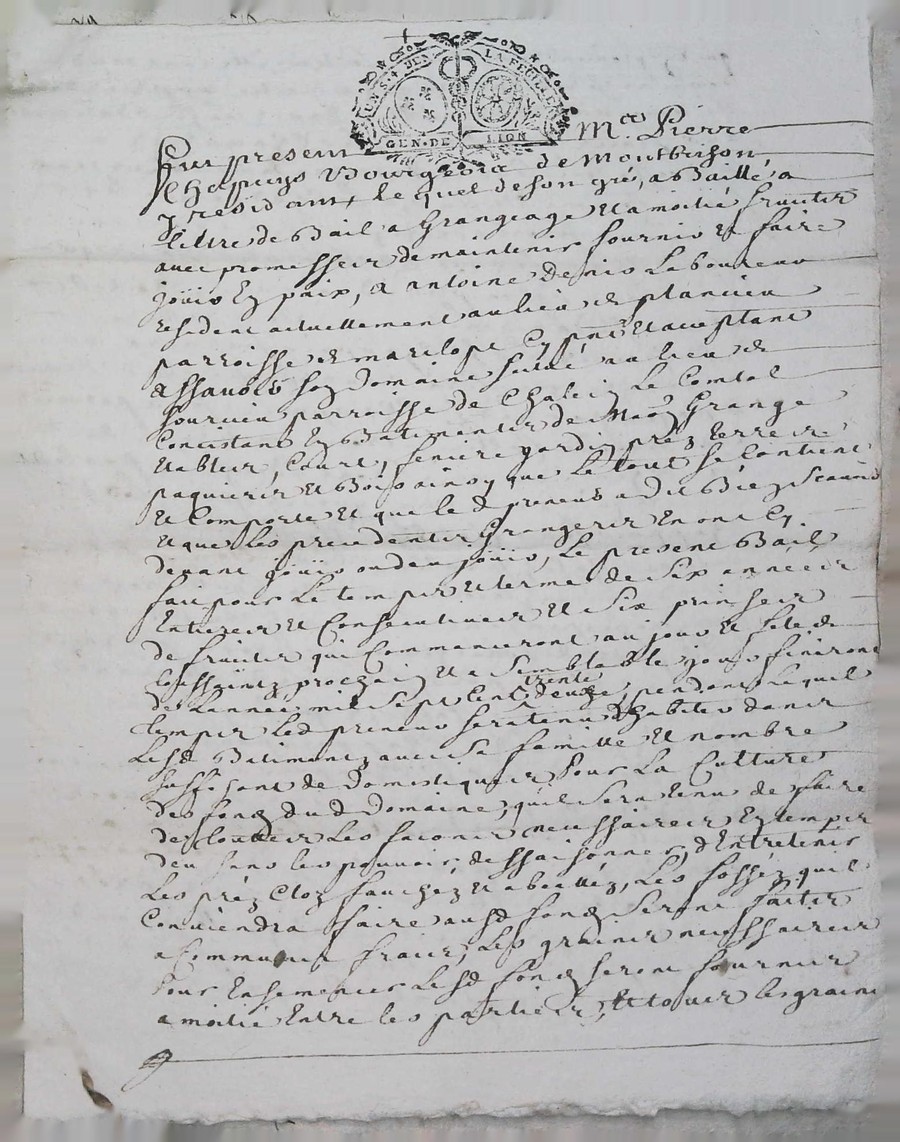 UN S. 4. DEN LA FEUILLE
GEN. DE LION
Fut present Mre Pierre
Chapuys Bourgeois de Montbrison
y residant, le quel de son gré, a Baillé a
tiltre de Bail a Grangeage et a moitié fruits
avec promesse de maintenir fournir et faire
jouir En paix, a antoine denis Laboureur
resident actuellement au lieu de plancieu
parroisse de marclopt Cy pnt et acceptant
assavoir son Domaine situé au lieu de
Sourcieu parroisse de Chalain Le Comtal
Concistant En Batimentz de Maon Grange
Etables, Court, feniere jardin préz terres
paquiers et Bois ainsy que Le tout se Contient
et Comporte et que le d preneur a dit Bien Scavoir
et que les precedents Grangers En ont Cy
devant jouir ou deu jouir, Le present Bail
fait pour Le temps et terme de Six années
Entieres et Consecutives et Six prinses
de fruits qui Commanceront au jour et fete de
toussaintz prochain et a Semblable jour finiront
de Lannée mil Sept Cent trente deux, pendant Lequel
temps Led preneur sera tenu d'habiter dans
Lesd Batimentz avec sa famille et nombre
suffisant de Domestiques pour La Culture
des fondz dud Domaine, quil sera tenu de faire
de touttes Les facons necessaires En temps
deu sans les pouvoir dessaisonner, d'Entretenir
Les préz Cloz fauchéz et abealléz, Les fosséz quil
Conviendra faire ausd fondz Seront faitez
a Communs fraix, Les grains necessaires
pour Ensemencer Lesd fondz seront fournis
a moitié Entre les parties, Et tous les grains